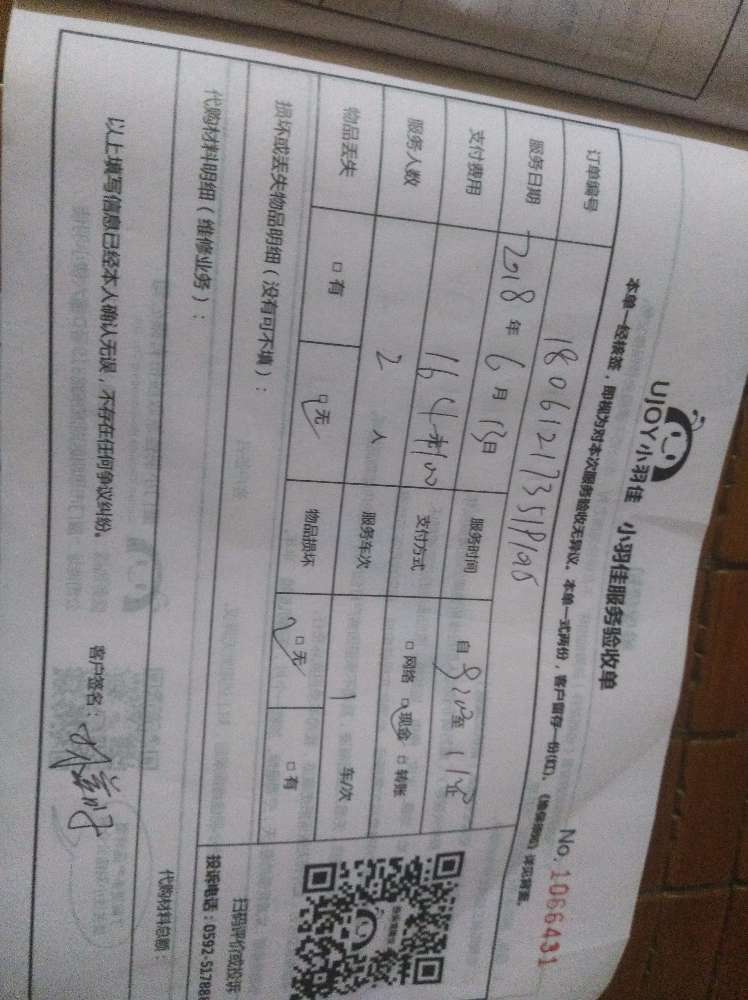 UJOY小羽佳 小羽佳服务验收单
No. 1066431
本单一经核签，即视为对本次服务验收无异议。本单一式两份，客户留存一份(红)。
订单编号
服务日期 2018 年 6 月 13 日 服务时间 自 至
支付费用 支付方式 □ 网络 □ 现金 □ 转账
服务人数 2 人 服务车次 1 车/次
物品丢失 □ 有 □ 无 物品损坏 □ 无 □ 有
损坏或丢失物品明细（没有可不填）：
扫码评价或投诉
投诉电话：0592-517888
代购材料明细（维修业务）： 代购材料总额：
以上填写信息已经本人确认无误，不存在任何争议纠纷。 客户签名：